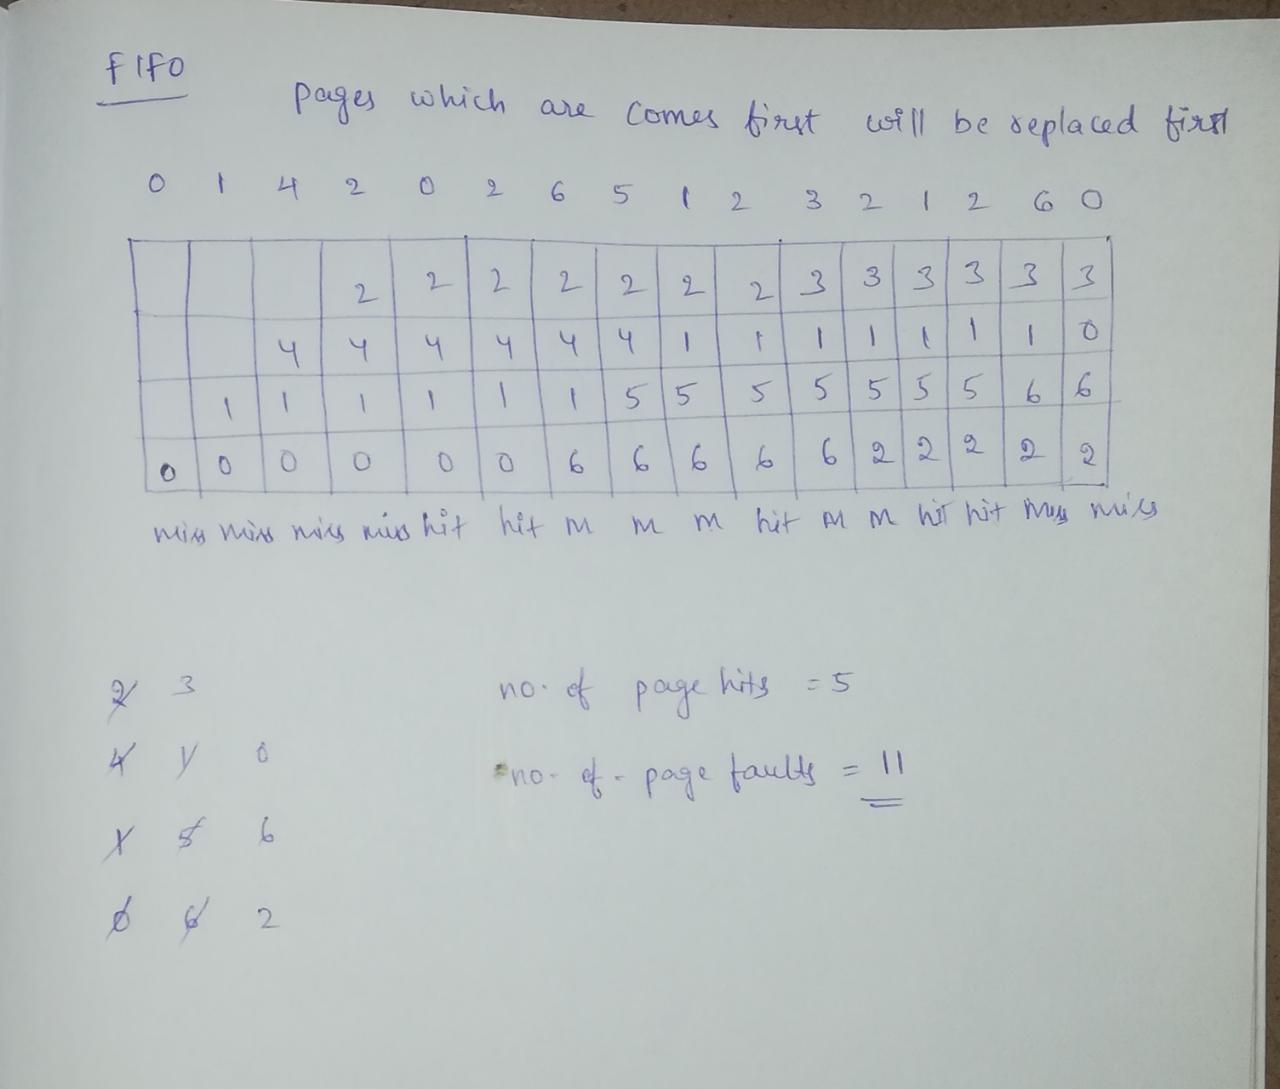 FIFO
pages which are comes first will be replaced first
0 1 4 2 0 2 6 5 1 2 3 2 1 2 6 0
2 2 2 2 2 2 2 3 3 3 3 3 3
4 4 4 4 4 4 1 1 1 1 1 1 1 0
1 1 1 1 1 1 5 5 5 5 5 5 5 6 6
0 0 0 0 0 0 6 6 6 6 6 2 2 2 2 2
miss miss miss miss hit hit m m m hit m m hit hit miss miss
2 3
no. of page hits = 5
4 1 0
no. of page faults = 11
1 5 6
0 6 2